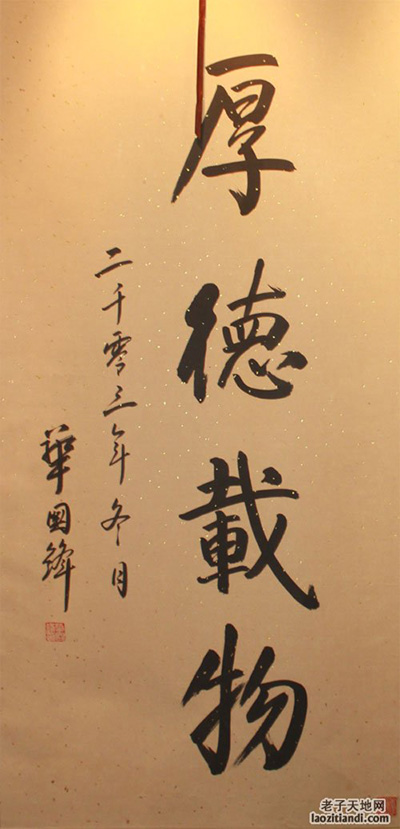 厚德載物
二千零三年冬月
華国鋒
老子天地网
laozitiandi.com